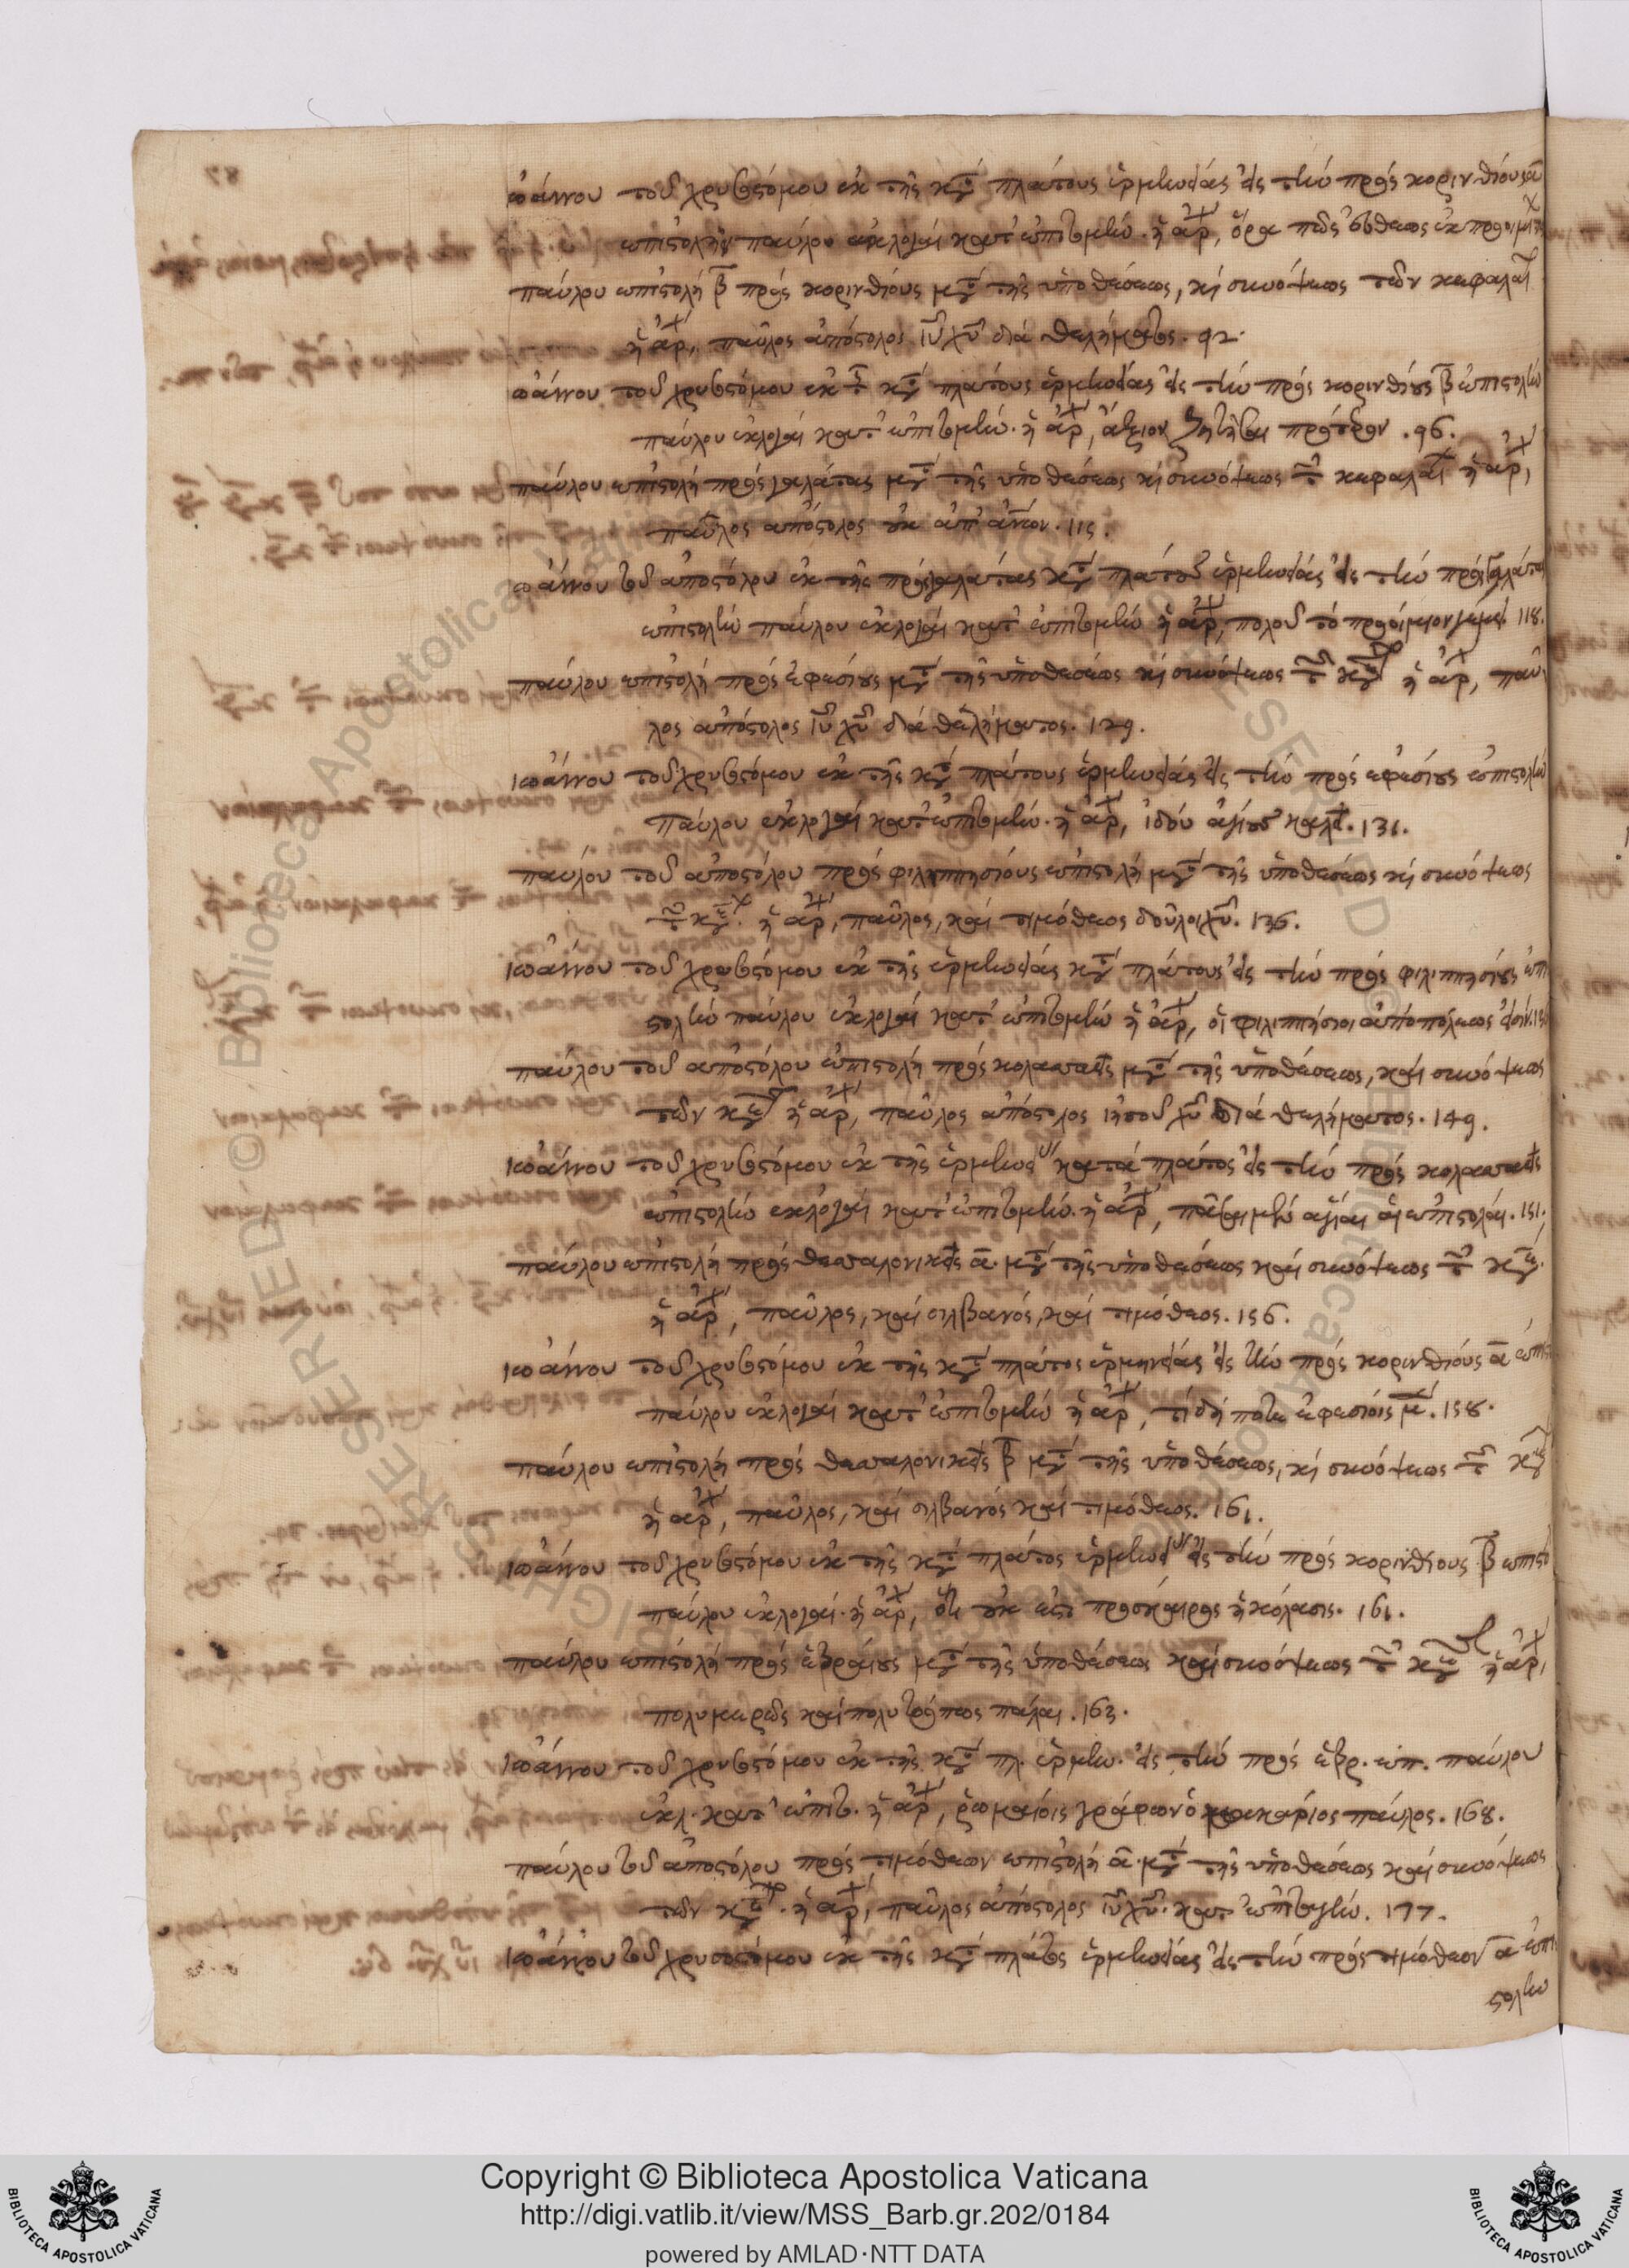 ἰωάννου τοῦ χρυσοστόμου ἐκ τῆς κτ πλάτους ἑρμηνείας εἰς τὴν πρὸς κορινθίους α
ἐπιστολὴν παύλου ἐκλογαὶ κατ' ἐπιτομὴν. ἡ ἀρχ, ὅρα πῶς εὐθέως ἐκ προοιμίων
παύλου ἐπιστολὴ β πρὸς κορινθίους μτ τῆς ὑποθέσεως, κὶ συνόψεως τῶν κεφαλαί
ἡ ἀρχ, παῦλος ἀπόστολος ιυ χυ διὰ θελήματος. 92.
ἰωάννου τοῦ χρυσοστόμου ἐκ τ κτ πλάτους ἑρμηνείας εἰς τὴν πρὸς κορινθίους β ἐπιστολὴν
παύλου ἐκλογαὶ κατ' ἐπιτομὴν. ἡ ἀρχ, ἄξιον ζητῆσαι πρότερον. 96.
παύλου ἐπιστολὴ πρὸς γαλάτας μτ τῆς ὑποθέσεως κὶ συνόψεως τ κεφαλαί ἡ ἀρχ,
παῦλος ἀπόστολος οὐκ ἀπ' ἀνων. 115.
ἰωάννου τοῦ ἀποστόλου ἐκ τῆς πρὸς γαλάτας κτ πλάτους ἑρμηνείας εἰς τὴν πρὸς γαλάτας
ἐπιστολὴν παύλου ἐκλογαὶ κατ' ἐπιτομὴν ἡ ἀρχ, πολλοῦ τὸ προοίμιον γέμει. 118.
παύλου ἐπιστολὴ πρὸς ἐφεσίους μτ τῆς ὑποθέσεως κὶ συνόψεως τ κε ἡ ἀρχ, παῦ
λος ἀπόστολος ιυ χυ διὰ θελήματος. 129.
ἰωάννου τοῦ χρυσοστόμου ἐκ τῆς κτ πλάτους ἑρμηνείας εἰς τὴν πρὸς ἐφεσίους ἐπιστολὴν
παύλου ἐκλογαὶ κατ' ἐπιτομὴν. ἡ ἀρχ, ἰδοὺ ἁγίους καλεῖ. 131.
παύλου τοῦ ἀποστόλου πρὸς φιλιππησίους ἐπιστολὴ μτ τῆς ὑποθέσεως κὶ συνόψεως
τ κε. ἡ ἀρχ, παῦλος, καὶ τιμόθεος δοῦλοι χυ. 136.
ἰωάννου τοῦ χρυσοστόμου ἐκ τῆς ἑρμηνείας κτ πλάτους εἰς τὴν πρὸς φιλιππησίους ἐπι
στολὴν παύλου ἐκλογαὶ κατ' ἐπιτομὴν ἡ ἀρχ, οἱ φιλιππήσιοι ἀπὸ πόλεως εἰσὶν.
παύλου τοῦ ἀποστόλου ἐπιστολὴ πρὸς κολασσαεῖς μτ τῆς ὑποθέσεως, καὶ συνόψεως
τῶν κε ἡ ἀρχ, παῦλος ἀπόστολος ἰησοῦ χυ διὰ θελήματος. 149.
ἰωάννου τοῦ χρυσοστόμου ἐκ τῆς ἑρμηνεί κατὰ πλάτος εἰς τὴν πρὸς κολασσαεῖς
ἐπιστολὴν ἐκλογαὶ κατ' ἐπιτομὴν. ἡ ἀρχ, πᾶσαι μὲν ἅγιαι αἱ ἐπιστολαί. 151.
παύλου ἐπιστολὴ πρὸς θεσσαλονικεῖς α. μτ τῆς ὑποθέσεως καὶ συνόψεως τ κε.
ἡ ἀρχ, παῦλος, καὶ σιλβανός, καὶ τιμόθεος. 156.
ἰωάννου τοῦ χρυσοστόμου ἐκ τῆς κτ πλάτος ἑρμηνείας εἰς τὴν πρὸς κορινθίους α ἐπιστ
παύλου ἐκλογαὶ κατ' ἐπιτομὴν ἡ ἀρχ, τί δή ποτε ἐφεσίοις μ. 158.
παύλου ἐπιστολὴ πρὸς θεσσαλονικεῖς β μτ τῆς ὑποθέσεως, κὶ συνόψεως τ κε
ἡ ἀρχ, παῦλος, καὶ σιλβανὸς καὶ τιμόθεος. 161.
ἰωάννου τοῦ χρυσοστόμου ἐκ τῆς κτ πλάτος ἑρμηνεί εἰς τὴν πρὸς κορινθίους β ἐπιστο
παύλου ἐκλογαὶ. ἡ ἀρχ, ὅτι οὐκ ἔστι πρόσκαιρος ἡ κόλασις. 161.
παύλου ἐπιστολὴ πρὸς ἑβραίους μτ τῆς ὑποθέσεως καὶ συνόψεως τ κε ἡ ἀρχ,
πολυμερῶς καὶ πολυτρόπως πάλαι. 163.
ἰωάννου τοῦ χρυσοστόμου ἐκ τῆς κτ πλ. ἑρμην. εἰς τὴν πρὸς ἑβρ. ἐπ. παύλου
ἐκλ. κατ' ἐπιτ. ἡ ἀρχ, ῥωμαίοις γράφων ὁ μακάριος παῦλος. 168.
παύλου τοῦ ἀποστόλου πρὸς τιμόθεον ἐπιστολὴ α. μτ τῆς ὑποθέσεως καὶ συνόψεως
τῶν κε. ἡ ἀρχ, παῦλος ἀπόστολος ιυ χυ. κατ' ἐπιταγὴν. 177.
ἰωάννου τοῦ χρυσοστόμου ἐκ τῆς κτ πλάτος ἑρμηνείας εἰς τὴν πρὸς τιμόθεον α ἐπι
στολὴν
Copyright © Biblioteca Apostolica Vaticana
http://digi.vatlib.it/view/MSS_Barb.gr.202/0184
powered by AMLAD·NTT DATA